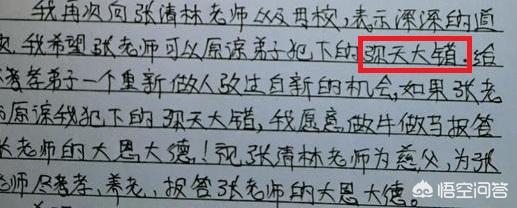 我再次向张清林老师以及母校,表示深深的道
歉,我希望张老师可以原谅弟子犯下的弥天大错.给
不孝弟子一个重新做人改过自新的机会,如果张老
师原谅我犯下的弥天大错,我愿意做牛做马报答
张老师的大恩大德!视张清林老师为慈父,为张
老师尽孝,养老,报答张老师的大恩大德。
悟空问答